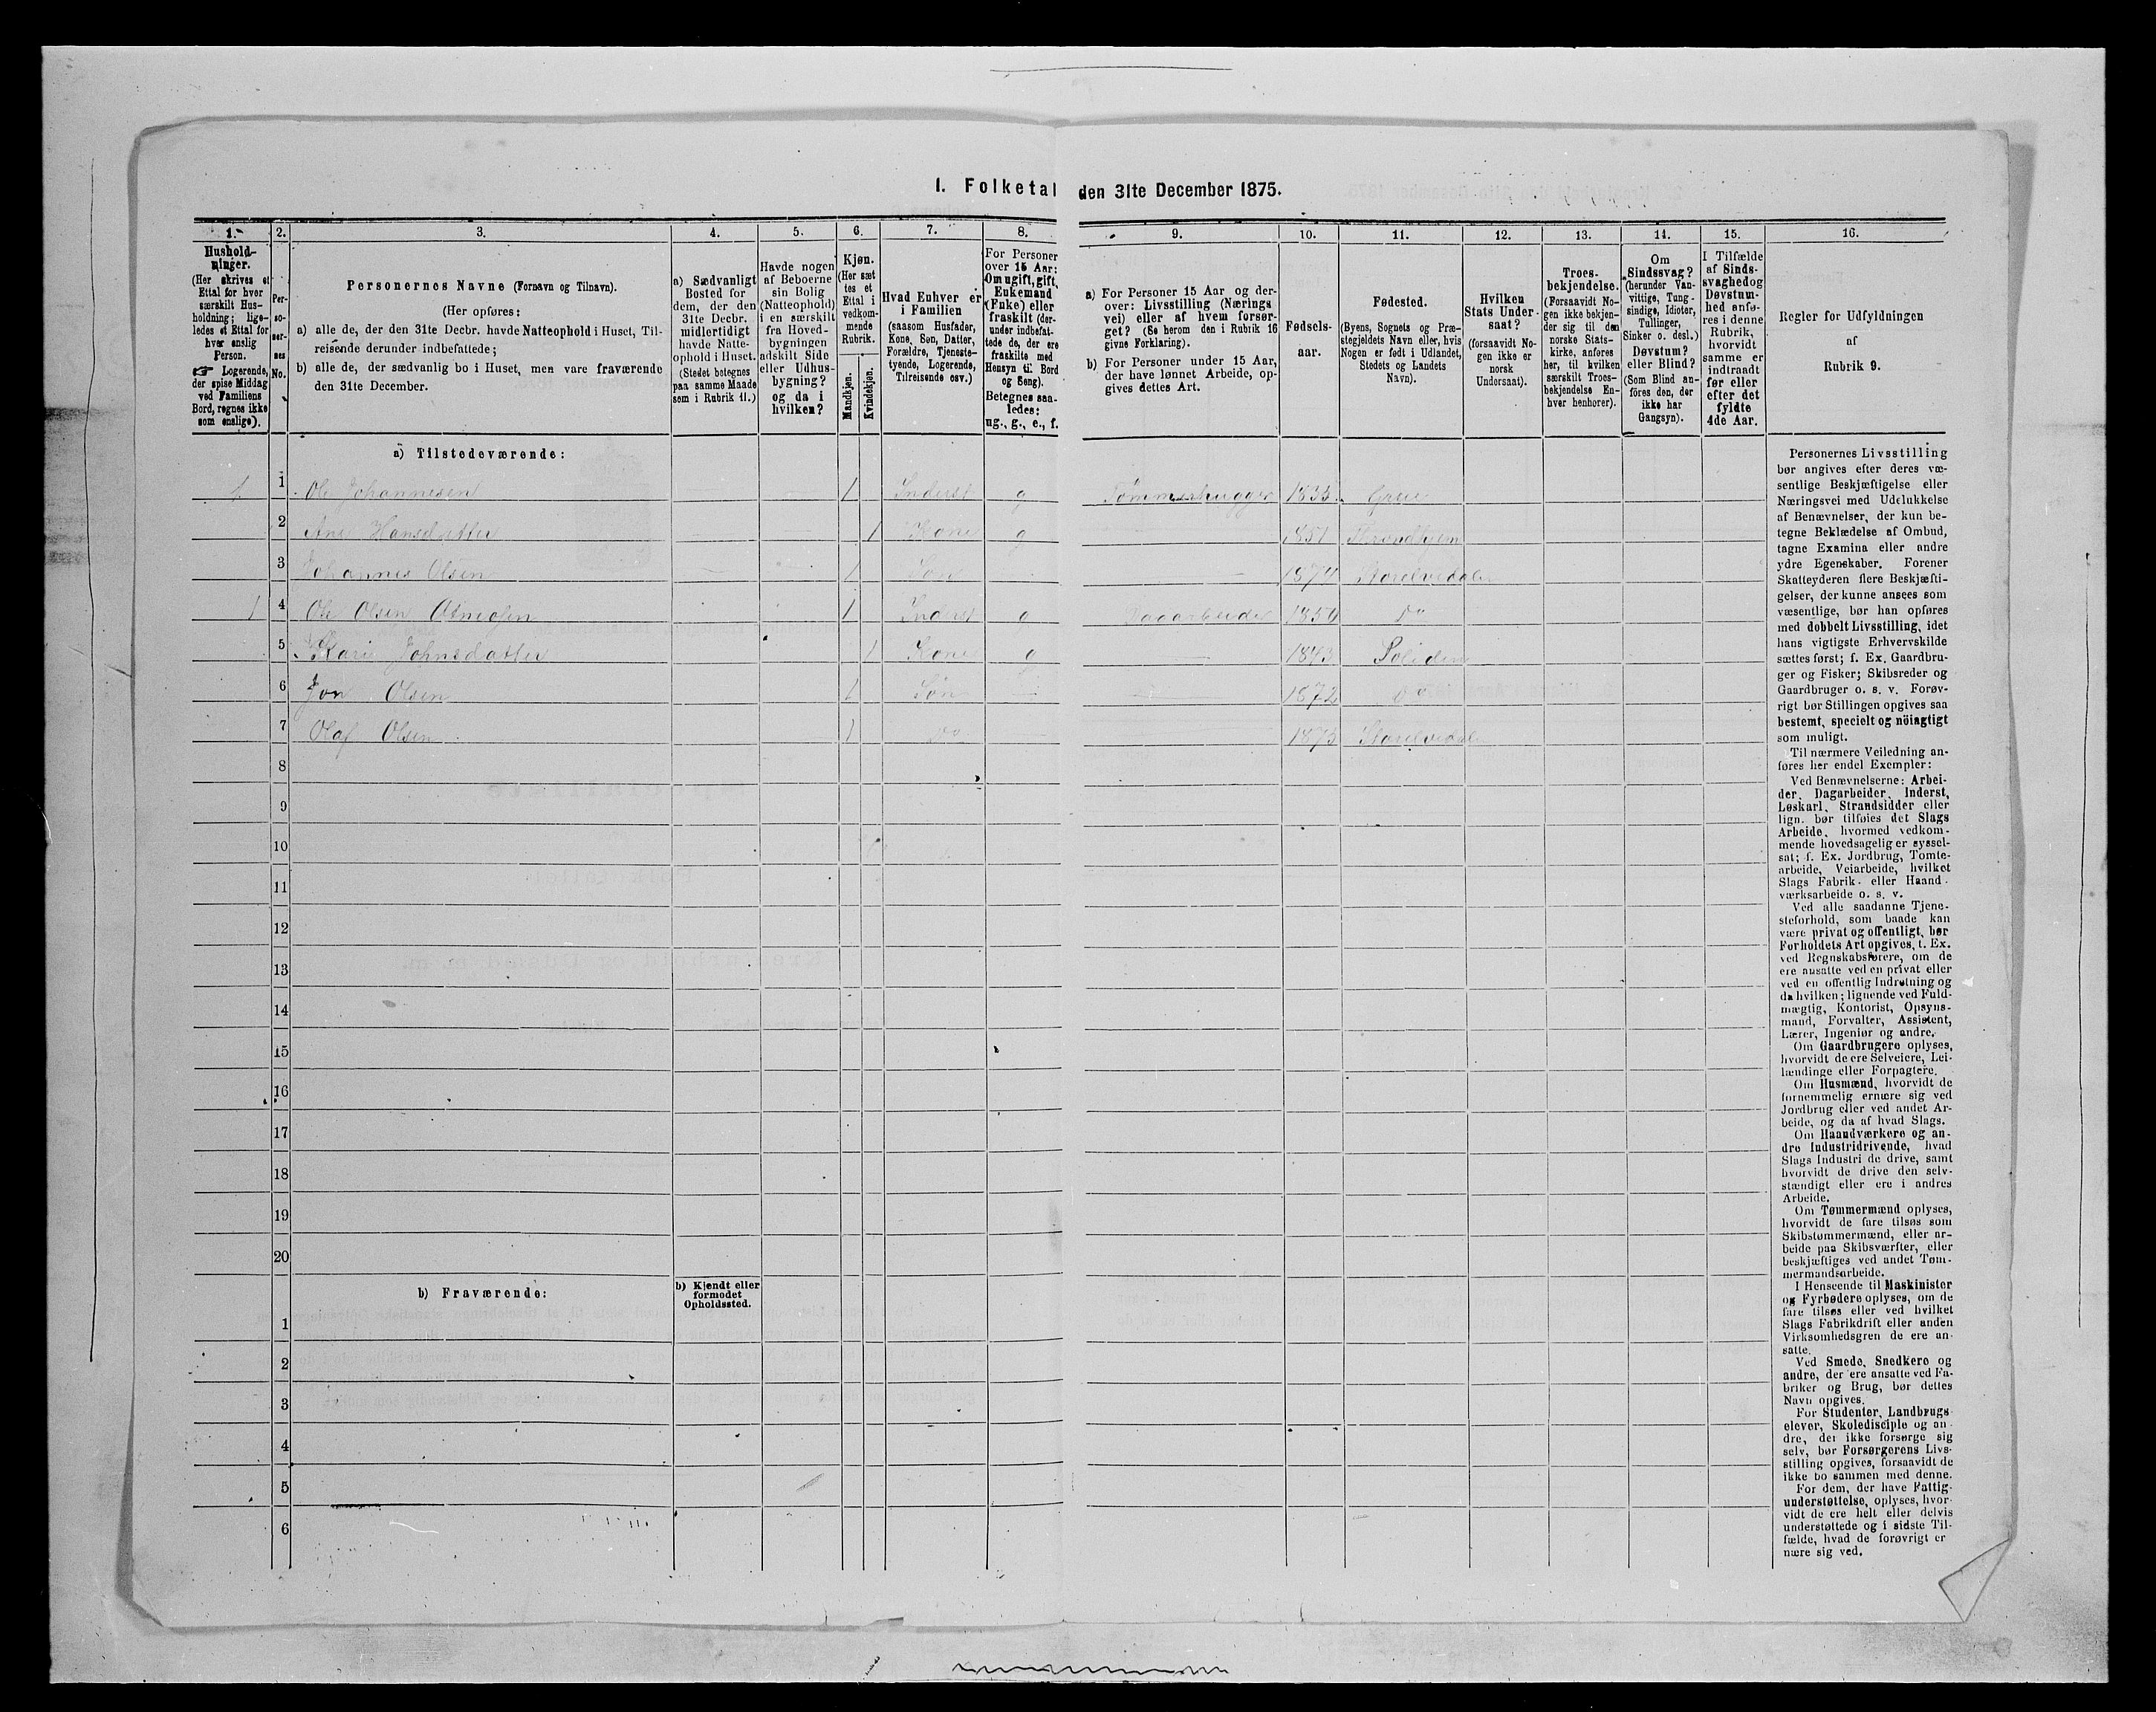 I. Folketal den 31te December 1875.
1.
Hushold-
ninger.
(Her skrives et
Ettal for hver
særskilt Hus-
holdning; lige-
ledes et Ettal for
hver enslig
Person.
☛ Logerende,
der spise Middag
ved Familiens
Bord, regnes ikke
som enslige).
2.
Per-
so-
ner-
nes
No.
3.
Personernes Navne (Fornavn og Tilnavn).
(Her opføres:
a) alle de, der den 31te Decbr. havde Natteophold i Huset, Til-
reisende derunder indbefattede;
b) alle de, der sædvanlig bo i Huset, men vare fraværende
den 31te December.
4.
a) Sædvanligt
Bosted for
dem, der den
31te Decbr.
midlertidigt
havde Natte-
ophold i Huset.
(Stedet betegnes
paa samme Maade
som i Rubrik 11.)
5.
Havde nogen
af Beboerne
sin Bolig
(Natteophold)
i en særskilt
fra Hoved-
bygningen
adskilt Side
eller Udhus-
bygning?
og da i
hvilken?
6.
Kjøn.
(Her sæt
tes et
Ettal i
vedkom-
mende
Rubrik.
Mandkjøn.
Kvindekjøn.
7.
Hvad Enhver er
i Familien
(saasom Husfader,
Kone, Søn, Datter,
Forældre, Tjeneste-
tyende, Logerende,
Tilreisende osv.)
8.
For Personer
over 15 Aar:
Om ugift, gift,
Enkemand
(Enke) eller
fraskilt (der-
under indbefat-
tede de, der ere
fraskilte med
Hensyn til Bord
og Seng).
Betegnes saa-
ledes:
ug., g., e., f.
9.
a) For Personer 15 Aar og der-
over: Livsstilling (Nærings
vei) eller af hvem forsør-
get? (Se herom den i Rubrik 16
givne Forklaring).
b) For Personer under 15 Aar,
der have lønnet Arbeide, op-
gives dettes Art.
10.
Fødsels-
aar.
11.
Fødested.
(Byens, Sognets og Præ-
stegjeldets Navn eller, hvis
Nogen er født i Udlandet,
Stedets og Landets
Navn).
12.
Hvilken
Stats Under-
saat?
(forsaavidt No-
gen ikke er
norsk
Undersaat).
13.
Troes-
bekjendelse.
(Forsaavidt No-
gen ikke bekjen-
der sig til den
norske Stats-
kirke, anføres
her, til hvilken
særskilt Troes-
bekjendelse En-
hver henhører).
14.
Om
Sindssvag?
(herunder Van-
vittige, Tung-
sindige, Idioter,
Tullinger,
Sinker o. desl.)
Døvstum?
eller Blind?
(Som Blind an-
föres den, der
ikke har
Gangsyn).
15.
I Tilfælde
af Sinds-
svaghed og
Døvstum-
hed anfø-
res i denne
Rubrik,
hvorvidt
samme er
indtraadt
før eller
efter det
fyldte
4de Aar.
16.
Regler for Udfyldningen
af
Rubrik 9.
a) Tilstedeværende:
1 1 Ole Johannesen 1 Inderst g Tømmerhugger 1833 Grue
2 Ane Hansdatter 1 Kone g 1851 Throndhjem
3 Johannes Olsen 1 Søn 1874 Storelvedalen
1 4 Ole Olsen 1 Inderst g Dagarbeider 1850 Do
5 Kari Johnsdatter 1 Kone g 1843
6 Jon Olsen 1 Søn 1872 Do
7 Olaf Olsen 1 Do 1875 Storelvedalen
8
9
10
11
12
13
14
15
16
17
18
19
20
b) Fraværende:
b) Kjendt eller
formodet
Opholdssted.
1
2
3
4
5
6
Personernes Livsstilling
bør angives efter deres væ-
sentlige Beskjæftigelse eller
Næringsvei med Udelukkelse
af Benævnelser, der kun be-
tegne Beklædelse af Ombud,
tagne Examina eller andre
ydre Egenskaber. Forener
Skatteyderen flere Beskjæfti-
gelser, der kunne ansees som
væsentlige, bør han opføres
med dobbelt Livsstilling, idet
hans vigtigste Erhvervskilde
sættes først; f. Ex. Gaardbru-
ger og Fisker; Skibsreder og
Gaardbruger o. s. v. Forøv-
rigt bør Stillingen opgives saa
bestemt, specielt og nöiagtigt
som muligt.
Til nærmere Veiledning an-
føres her endel Exempler:
Ved Benævnelserne: Arbei-
der, Dagarbeider, Inderst,
Løskarl, Strandsidder eller
lign. bør tilføies det Slags
Arbeide, hvormed vedkom-
mende hovedsagelig er syssel-
sat; f. Ex. Jordbrug, Tomte-
arbeide, Veiarbeide, hvilket
Slags Fabrik- eller Haand-
værksarbeide o. s. v.
Ved alle saadanne Tjene-
steforhold, som baade kan
være privat og offentligt, bør
Forholdets Art opgives, t. Ex.
ved Regnskabsførere, om de
ere ansatte ved en privat eller
ved en offentlig Indretning og
da hvilken; lignende ved Fuld-
mægtig, Kontorist, Opsyns-
mand, Forvalter, Assistent,
Lærer, Ingeniør og andre.
Om Gaardbrugere oplyses,
hvorvidt de ere Selveiere, Lei-
lændinge eller Forpagtere.
Om Husmænd, hvorvidt de
fornemmelig ernære sig ved
Jordbrug eller ved andet Ar-
beide, og da af hvad Slags.
Om Haandværkere og an-
dre Industridrivende, hvad
Slags Industri de drive, samt
hvorvidt de drive den selv-
stændigt eller ere i andres
Arbeide.
Om Tømmermænd oplyses,
hvorvidt de fare tilsøs som
Skibstømmermænd, eller ar-
beide paa Skibsværfter, eller
beskjæftiges ved andet Tøm-
mermandsarbeide.
I Henseende til Maskinister
og Fyrbødere oplyses, om de
fare tilsøs eller ved hvilket
Slags Fabrikdrift eller anden
Virksomhedsgren de ere an-
satte.
Ved Smede, Snedkere og
andre, der ere ansatte ved Fa-
briker og Brug, bør dettes
Navn opgives.
For Studenter, Landbrugs
elever, Skoledisciple og an-
dre, der ikke forsørge sig
selv, bør Forsørgerens Livs-
stilling opgives, forsaavidt de
ikke bo sammen med denne.
For dem, der have Fattig-
understøttelse, oplyses, hvor-
vidt de ere helt eller delvis
understøttede og i sidste Til-
fælde, hvad de forøvrigt er
nære sig ved.